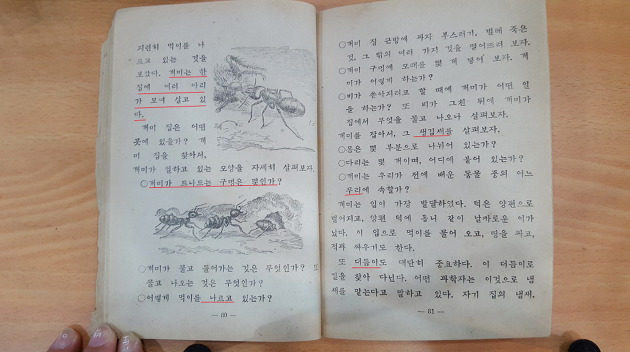 지런히 먹이를 나
르고 있는 것을
보았다. 개미는 한
집에 여러 마리
가 모여 살고 있
다.
개미 집은 어떤
곳에 있을가? 개
미 집을 찾아서,
개미가 일하고 있는 모양을 자세히 살펴보자.
○개미가 드나드는 구멍은 몇인가?
○개미가 물고 들어가는 것은 무엇인가? 또
물고 나오는 것은 무엇인가?
○어떻게 먹이를 나르고 있는가?
— 80 —
○개미 집 근방에 과자 부스러기, 벌레 죽은
것, 그 밖의 여러 가지 것을 떨어뜨려 보자.
○개미 구멍에 모래를 몇 개 넣어 보자. 개
미가 어떻게 하는가?
○비가 쏟아지려고 할 때에 개미가 어떤 일
을 하는가? 또 비가 그친 뒤에 개미가
집에서 무엇을 물고 나오나 살펴보자.
개미를 잡아서, 그 생김새를 살펴보자.
○몸은 몇 부분으로 나뉘어 있는가?
○다리는 몇 개이며, 어디에 붙어 있는가?
○개미는 우리가 전에 배운 동물 중의 어느
우리에 속할가?
개미는 입이 가장 발달하였다. 턱은 양편으로
벌어지고, 양편 턱에 톱니 같이 날카로운 이가
났다. 이 입으로 먹이를 물어 오고, 땅을 파고,
적과 싸우기도 한다.
또 더듬이도 대단히 중요하다. 이 더듬이로
길을 찾아 다닌다. 어떤 과학자는 이것으로 냄
새를 맡는다고 말하고 있다. 자기 집의 냄새,
— 81 —